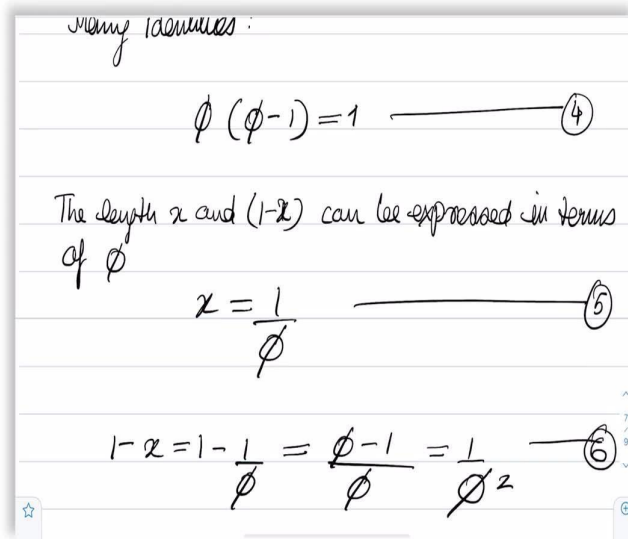 Many identities :
ϕ (ϕ-1) = 1 ——— ④
The length x and (1-x) can be expressed in terms
of ϕ
x = 1/ϕ ——— ⑤
1-x = 1 - 1/ϕ = (ϕ-1)/ϕ = 1/ϕ² — ⑥